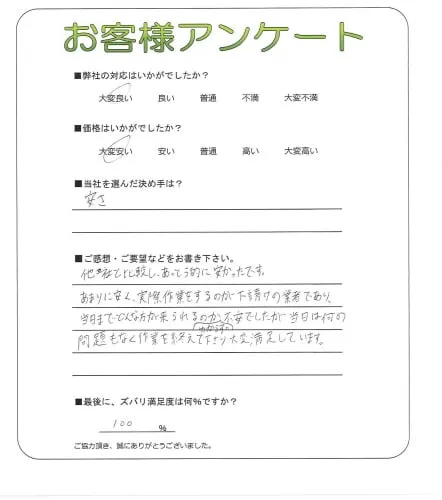 お客様アンケート
■弊社の対応はいかがでしたか？
大変良い 良い 普通 不満 大変不満
■価格はいかがでしたか？
大変安い 安い 普通 高い 大変高い
■当社を選んだ決め手は？
安さ
■ご感想・ご要望などをお書き下さい。
他社で比較し、あっとう的に安かったです。
あまりに安く、実際作業をするのが下請けの業者であり、
当日までどんな方が来られるのか不安でしたが当日は何の
問題もなく作業を終えて下さり大変満足しています。
■最後に、ズバリ満足度は何％ですか？
100 %
ご協力頂き、誠にありがとうございました。